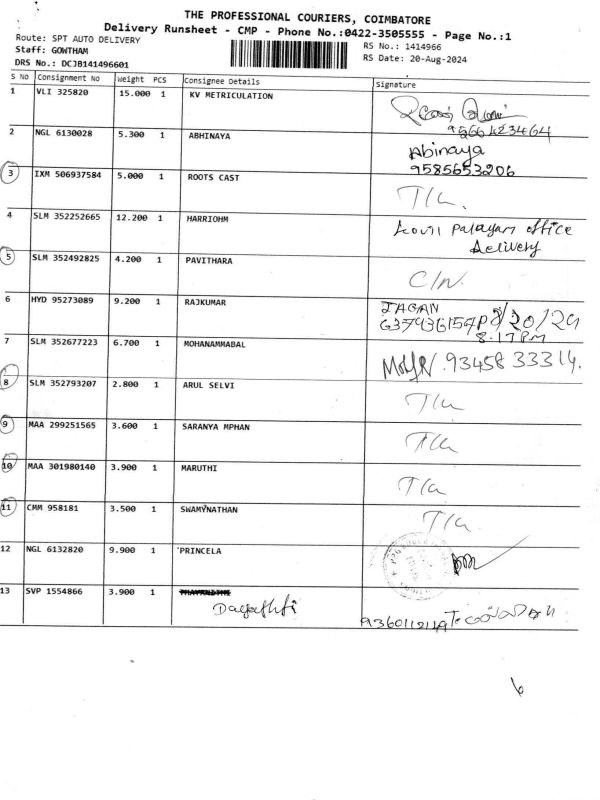 THE PROFESSIONAL COURIERS, COIMBATORE
Delivery Runsheet - CMP - Phone No.:0422-3505555 - Page No.:1
Route: SPT AUTO DELIVERY
RS No.: 1414966
Staff: GOWTHAM
RS Date: 20-Aug-2024
DRS No.: DCJB141496601
S No Consignment No Weight PCS Consignee Details Signature
1 VLI 325820 15.000 1 KV METRICULATION
9566423464
2 NGL 6130028 5.300 1 ABHINAYA Abinaya
9585653206
3 IXM 506937584 5.000 1 ROOTS CAST T/L.
4 SLM 352252665 12.200 1 HARRIOHM Kovil Palayam office
Delivery
5 SLM 352492825 4.200 1 PAVITHARA C/N.
6 HYD 95273089 9.200 1 RAJKUMAR JAGAN
8/20/24
8:17PM
7 SLM 352677223 6.700 1 MOHANAMMABAL 93458 33314.
8 SLM 352793207 2.800 1 ARUL SELVI T/L
9 MAA 299251565 3.600 1 SARANYA MPHAN T/L
10 MAA 301980140 3.900 1 MARUTHI T/L
11 CMM 958181 3.500 1 SWAMYNATHAN T/L
12 NGL 6132820 9.900 1 PRINCELA
13 SVP 1554866 3.900 1
6